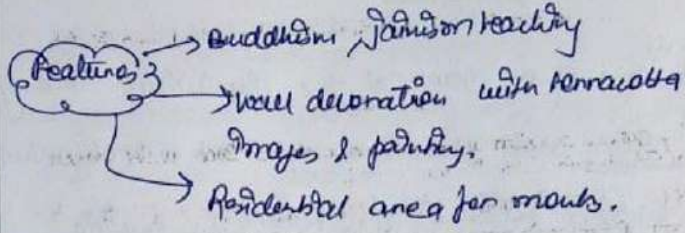 Features
Buddhism, Jainism teaching
Wall decoration with terracotta
images & painting.
Residential area for monks.